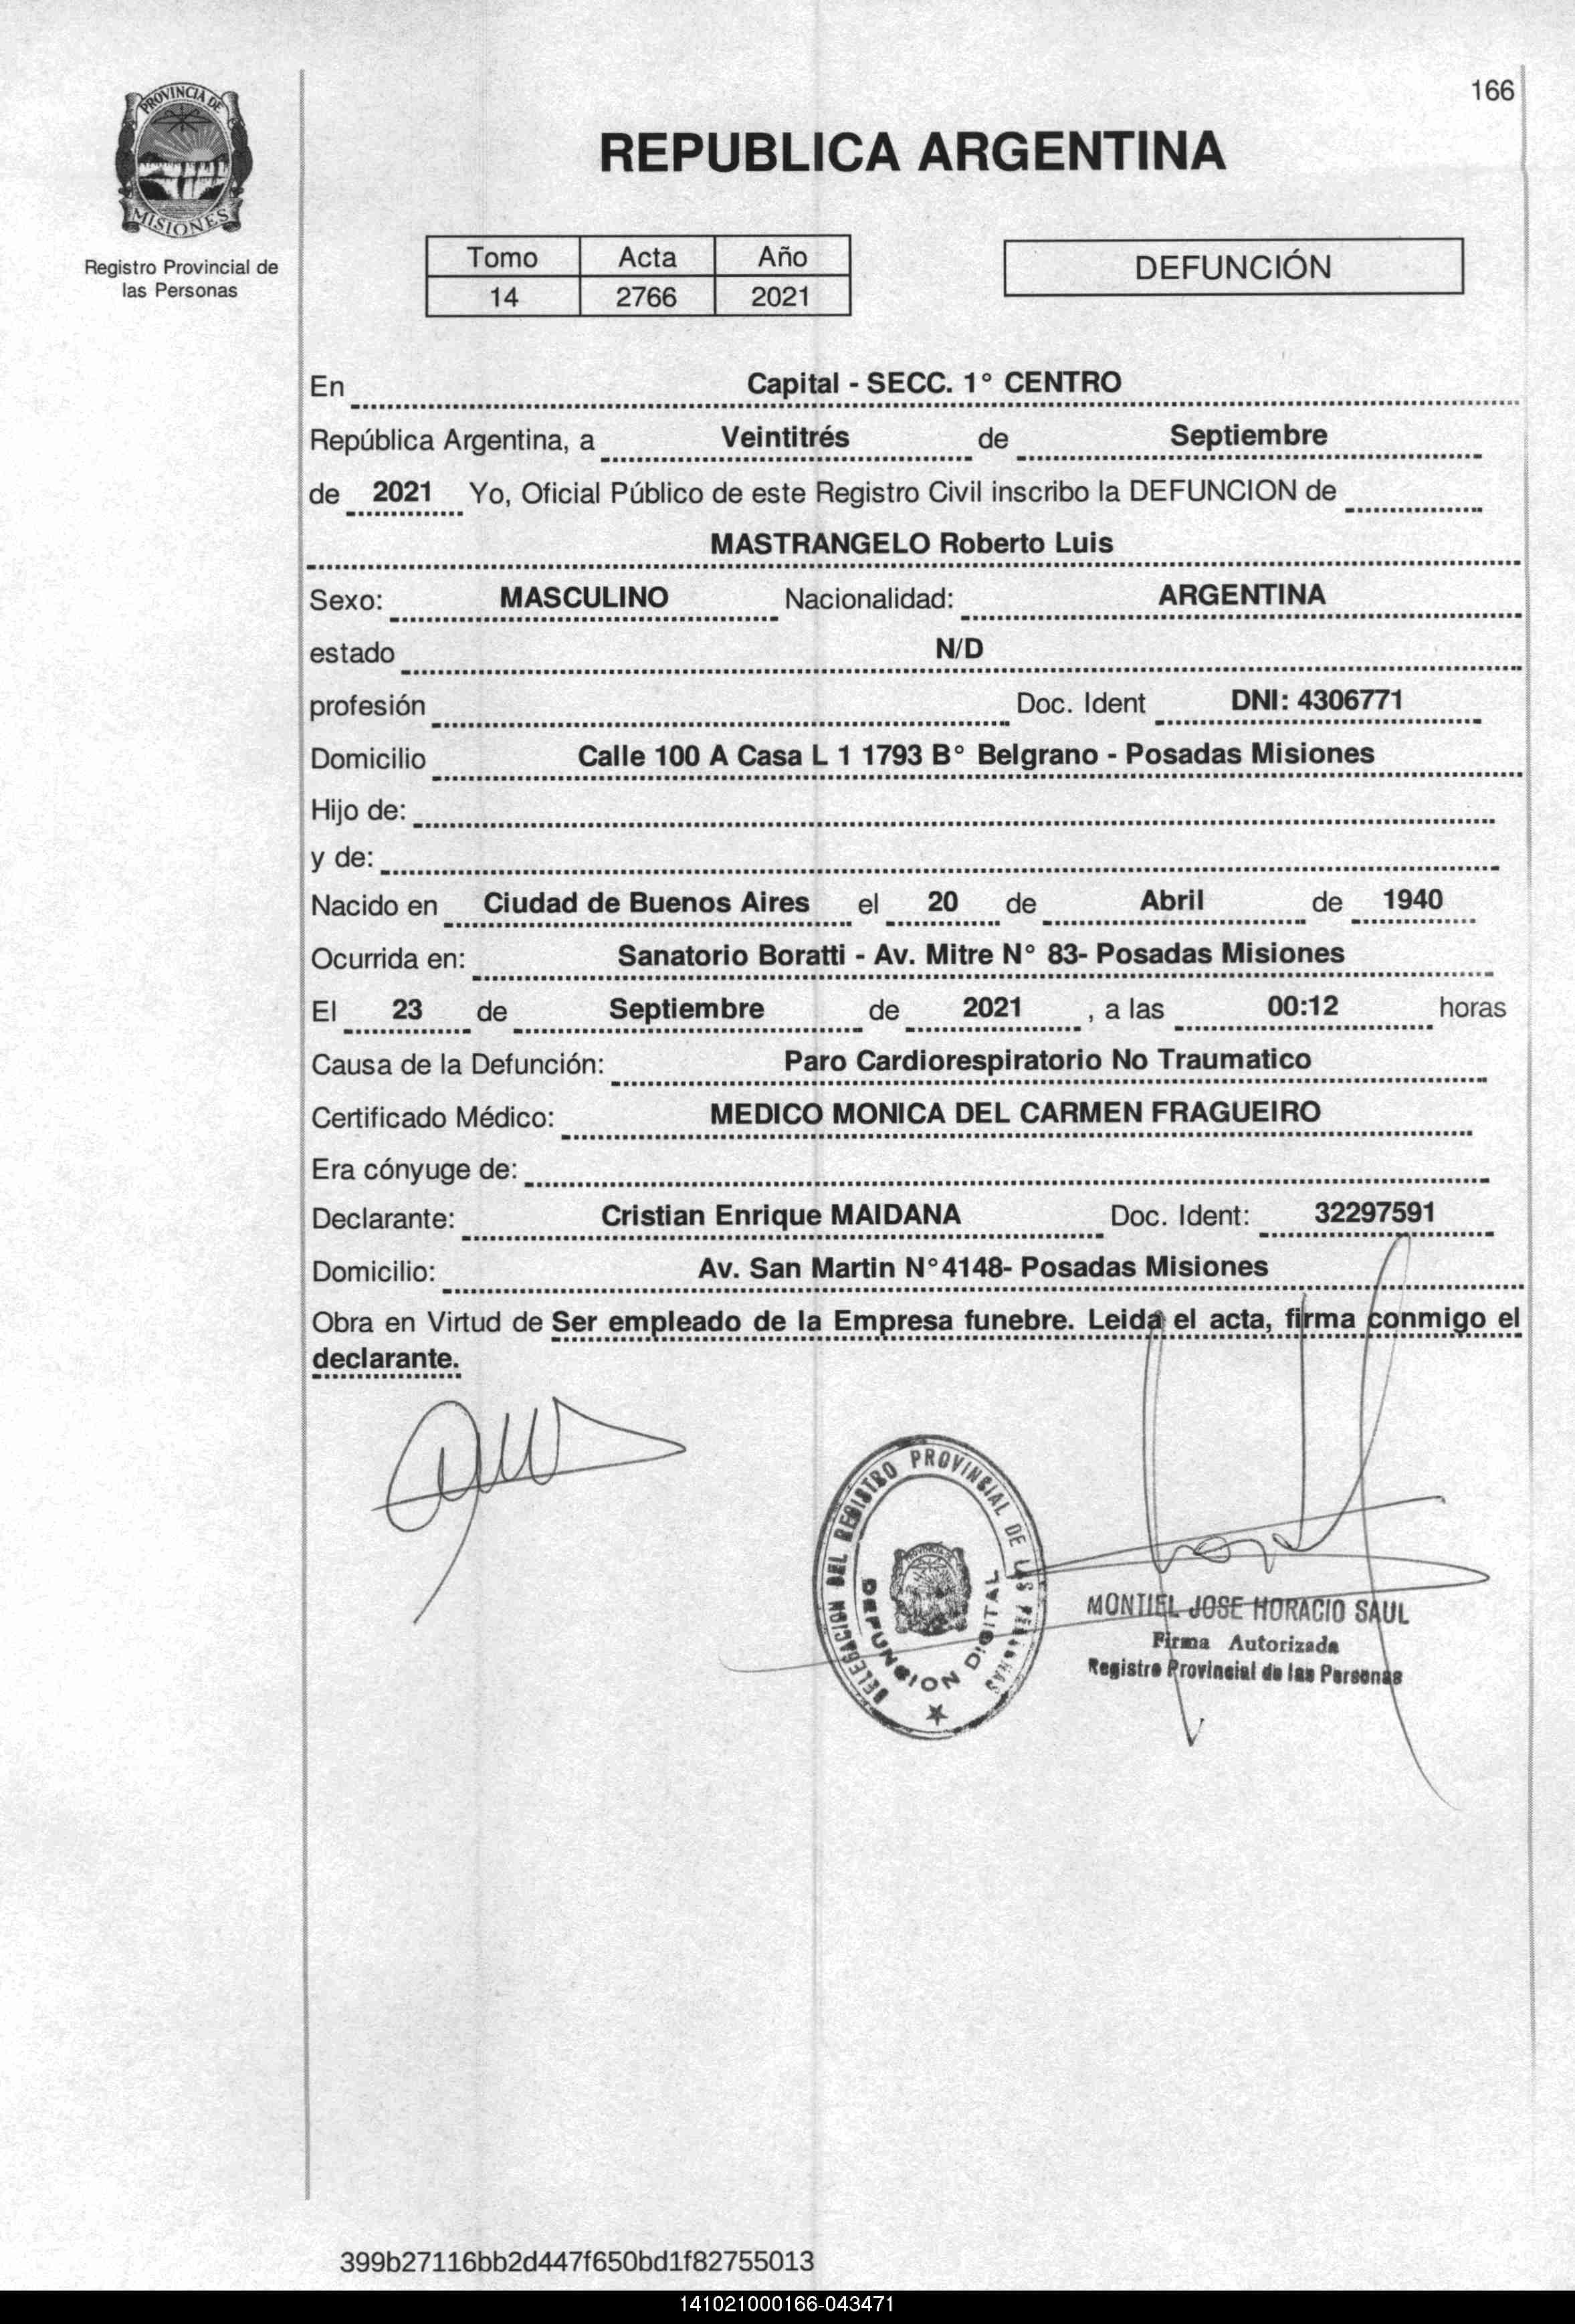 166
PROVINCIA DE
MISIONES
Registro Provincial de
las Personas
REPUBLICA ARGENTINA
Tomo Acta Año
14 2766 2021
DEFUNCIÓN
En Capital - SECC. 1° CENTRO
República Argentina, a Veintitrés de Septiembre
de 2021 Yo, Oficial Público de este Registro Civil inscribo la DEFUNCION de
MASTRANGELO Roberto Luis
Sexo: MASCULINO Nacionalidad: ARGENTINA
estado N/D
profesión Doc. Ident DNI: 4306771
Domicilio Calle 100 A Casa L 1 1793 B° Belgrano - Posadas Misiones
Hijo de:
y de:
Nacido en Ciudad de Buenos Aires el 20 de Abril de 1940
Ocurrida en: Sanatorio Boratti - Av. Mitre N° 83- Posadas Misiones
El 23 de Septiembre de 2021 , a las 00:12 horas
Causa de la Defunción: Paro Cardiorespiratorio No Traumatico
Certificado Médico: MEDICO MONICA DEL CARMEN FRAGUEIRO
Era cónyuge de:
Declarante: Cristian Enrique MAIDANA Doc. Ident: 32297591
Domicilio: Av. San Martin N°4148- Posadas Misiones
Obra en Virtud de Ser empleado de la Empresa funebre. Leida el acta, firma conmigo el
declarante.
DELEGACION DEL REGISTRO PROVINCIAL DE LAS PERSONAS
DEFUNCION DIGITAL
MONTIEL JOSE HORACIO SAUL
Firma Autorizada
Registro Provincial de las Personas
399b27116bb2d447f650bd1f82755013
141021000166-043471